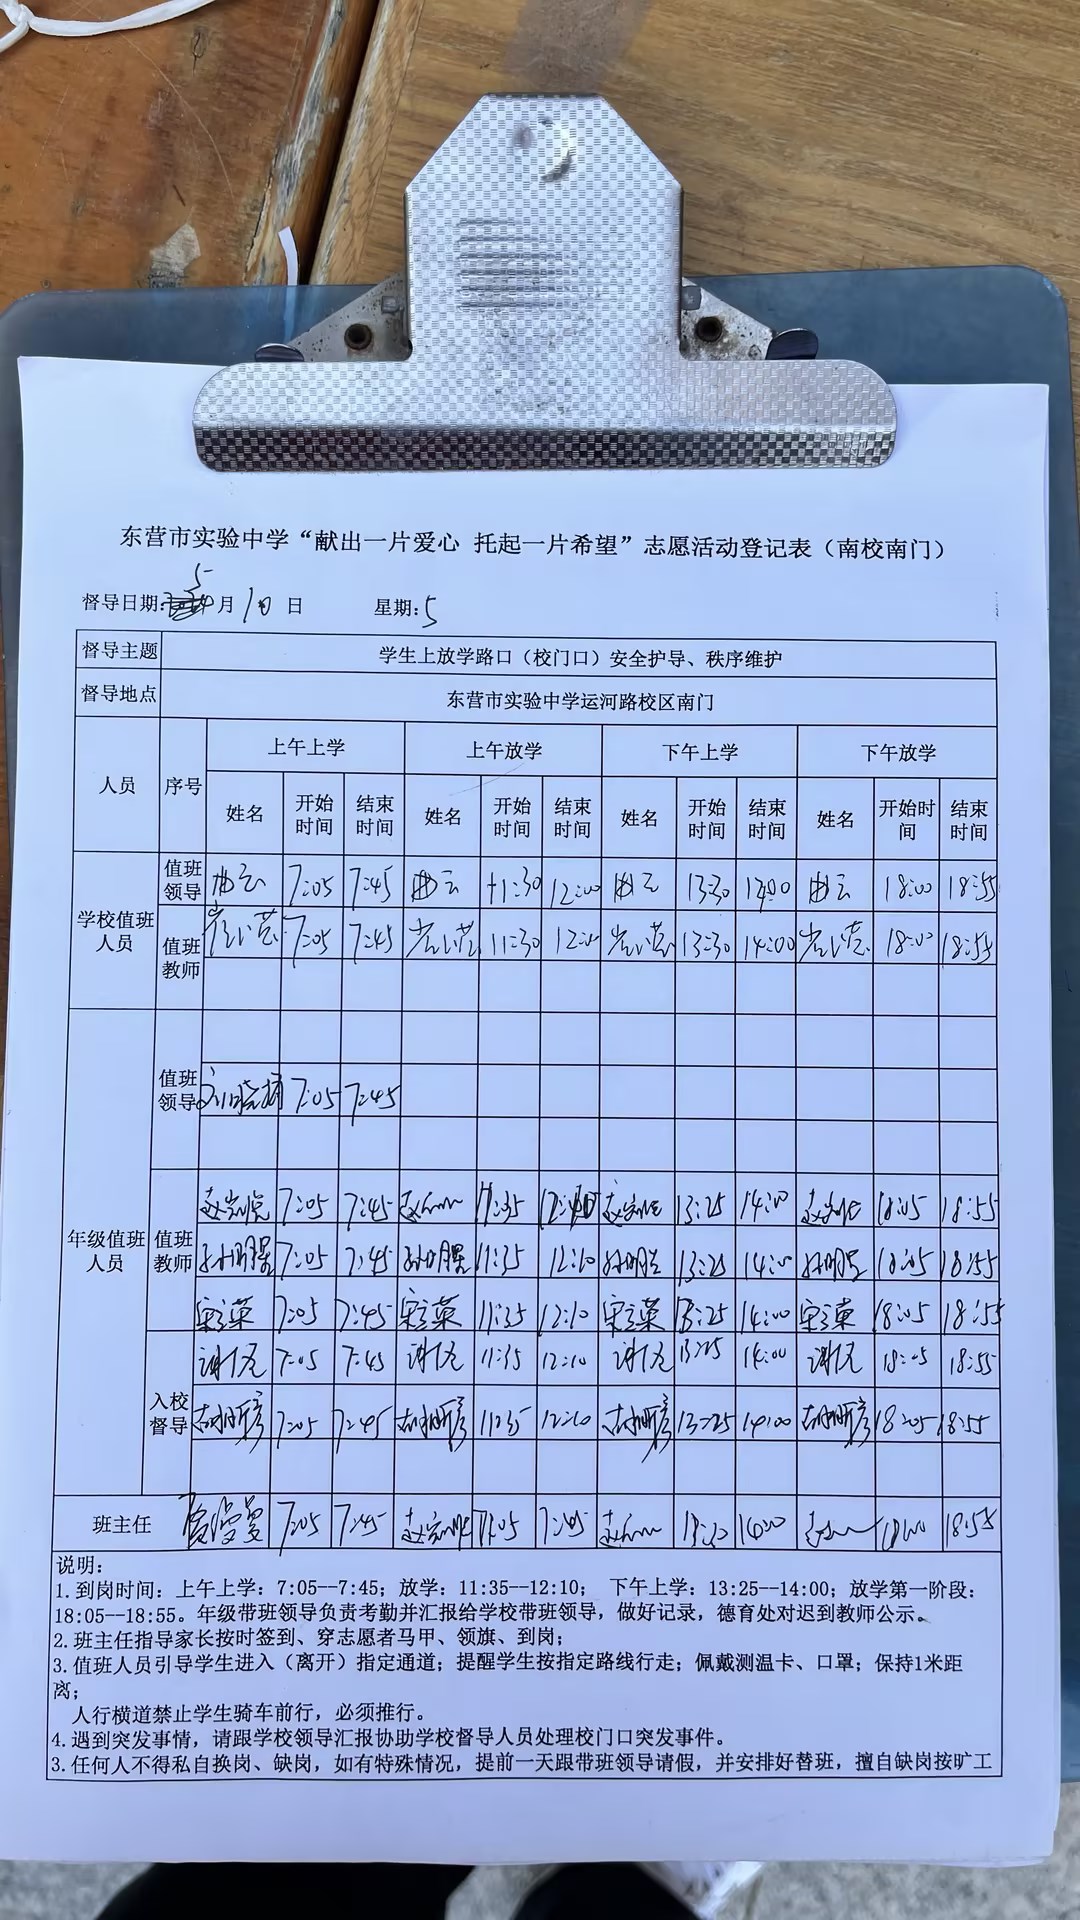 东营市实验中学“献出一片爱心 托起一片希望”志愿活动登记表（南校南门）
督导日期: 5月10日 星期:5
督导主题 学生上放学路口（校门口）安全护导、秩序维护
督导地点 东营市实验中学运河路校区南门
人员 序号 上午上学 上午放学 下午上学 下午放学
姓名 开始时间 结束时间 姓名 开始时间 结束时间 姓名 开始时间 结束时间 姓名 开始时间 结束时间
学校值班人员 值班领导 曲云 7:05 7:45 曲云 11:30 12:00 曲云 13:30 曲云 18:00 18:55
值班教师 7:05 7:45 11:30 13:30 14:00 18:00 18:55
年级值班人员 值班领导 7:05 7:45
值班教师 7:05 7:45 11:35 13:25 14:00 18:05 18:55
7:05 7:45 11:35 12:10 13:25 14:00 18:05 18:55
宋立荣 7:05 7:45 宋立荣 11:35 12:10 宋立荣 13:25 14:00 宋立荣 18:05 18:55
入校督导 7:05 7:45 11:35 12:10 13:25 14:00 18:05 18:55
7:05 7:45 11:35 12:10 13:25 14:00 18:05 18:55
班主任 7:05 7:45 7:45 14:00 18:00 18:55
说明:
1. 到岗时间: 上午上学: 7:05--7:45; 放学: 11:35--12:10; 下午上学: 13:25--14:00; 放学第一阶段:
18:05--18:55。年级带班领导负责考勤并汇报给学校带班领导，做好记录，德育处对迟到教师公示。
2. 班主任指导家长按时签到、穿志愿者马甲、领旗、到岗;
3. 值班人员引导学生进入（离开）指定通道; 提醒学生按指定路线行走; 佩戴测温卡、口罩; 保持1米距
离;
人行横道禁止学生骑车前行，必须推行。
4. 遇到突发事情，请跟学校领导汇报协助学校督导人员处理校门口突发事件。
3. 任何人不得私自换岗、缺岗，如有特殊情况，提前一天跟带班领导请假，并安排好替班，擅自缺岗按旷工